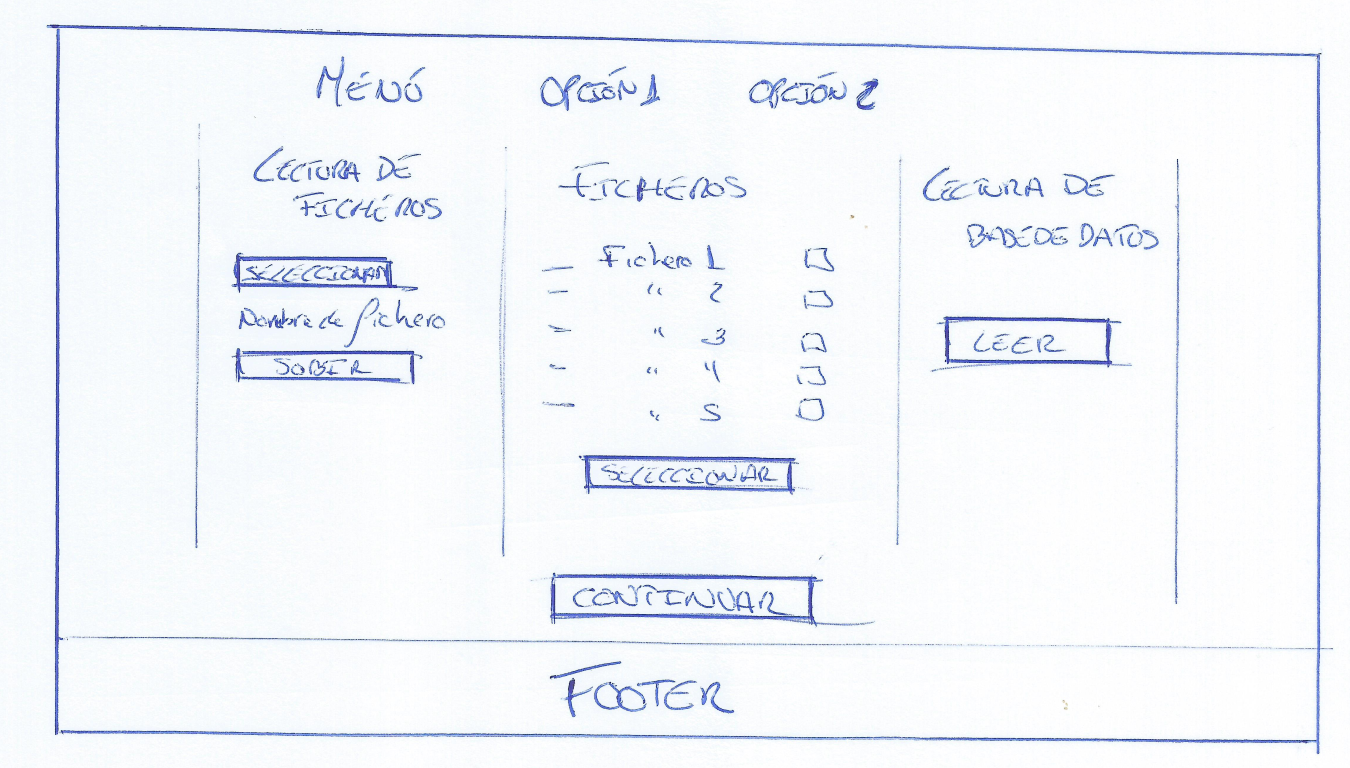 MENÚ OPCIÓN 1 OPCIÓN 2
LECTURA DE
FICHEROS
SELECCIONAR
Nombre de fichero
SUBIR
FICHEROS
— Fichero 1
— " 2
— " 3
— " 4
— " 5
SELECCIONAR
LECTURA DE
BASE DE DATOS
LEER
CONTINUAR
FOOTER